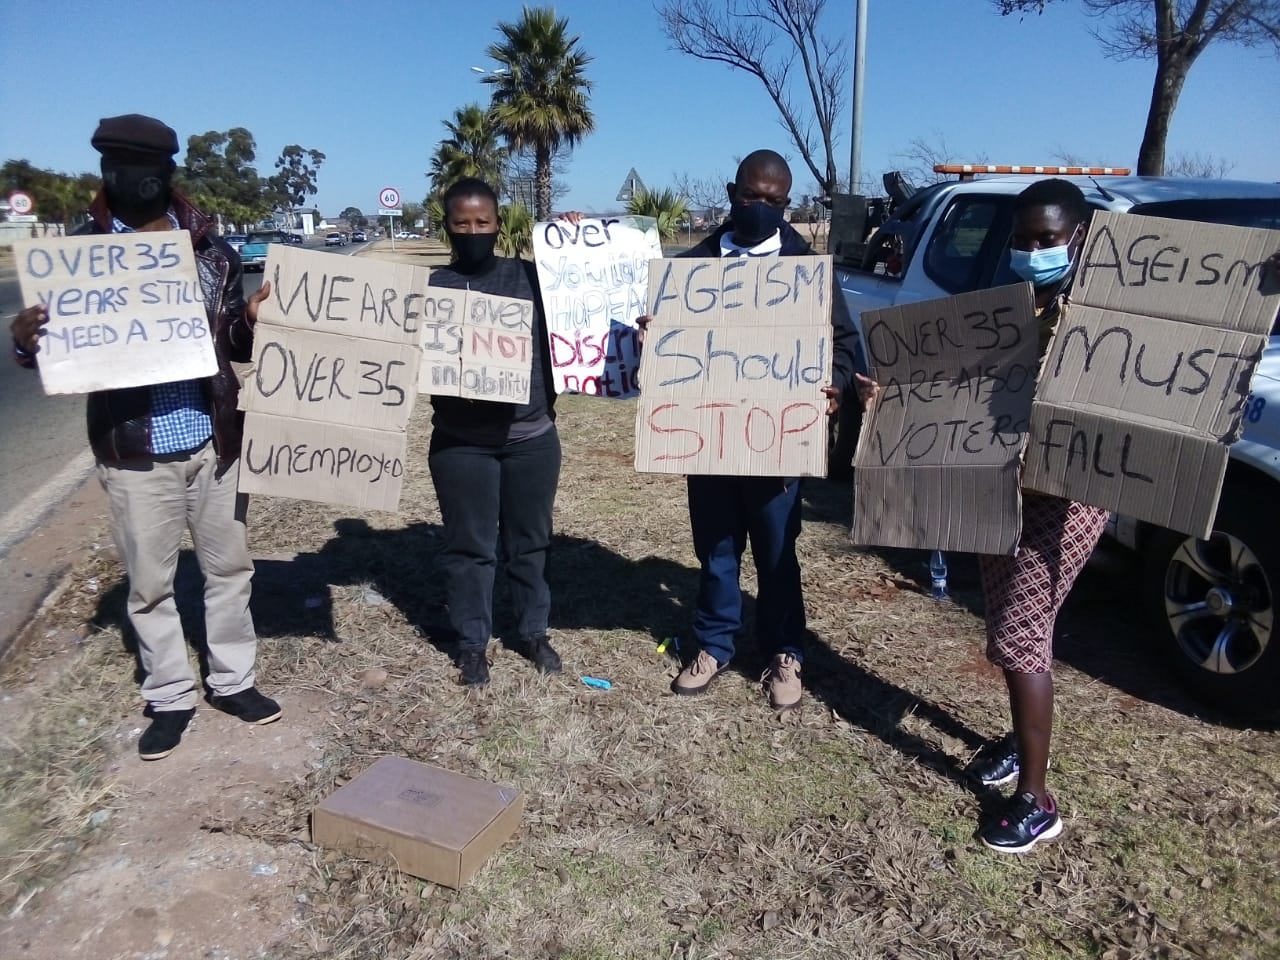 60
60
OVER 35
years STILL
NEED A JOB
WE ARE
OVER 35
unemployed
ng over
IS NOT
inability
over
HOPE
Discri
natio
AGEISM
Should
STOP
OVER 35
ARE AlSO
VOTERS
AgEISM
MUST
FALL